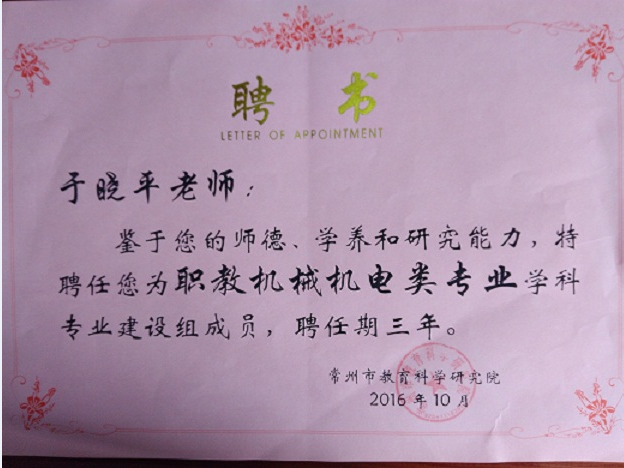 聘 书
LETTER OF APPOINTMENT
于晓平老师：
鉴于您的师德、学养和研究能力，特
聘任您为职教机械机电类专业学科
专业建设组成员，聘任期三年。
常州市教育科学研究院
2016年10月